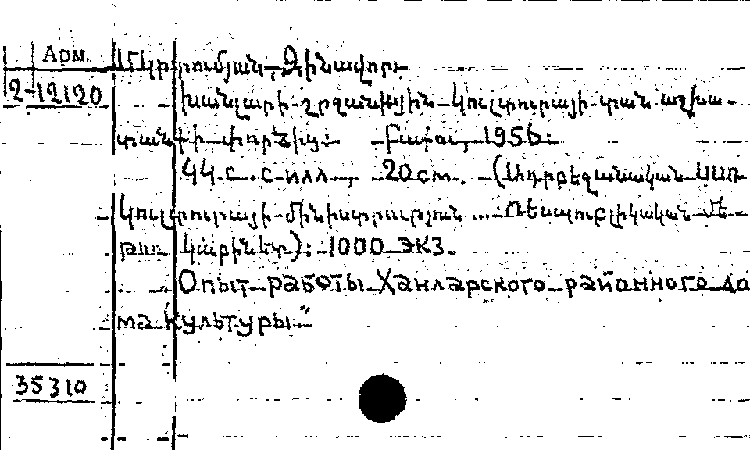 Арм. Մկրտումյան, Զինավոր.
2-12120 Խանլարի շրջանային կուլտուրայի տան աշխա-
տանքի փորձից: Բաքու, 1956:
44 с. с илл., 20 cm. (Ադրբեջանական ՍՍՌ
կուլտուրայի մինիստրության ... Ռեսպուբլիկական մե-
թոդ. կաբինետ): 1000 экз.
Опыт работы Ханларского районного до
ма культуры."
35310